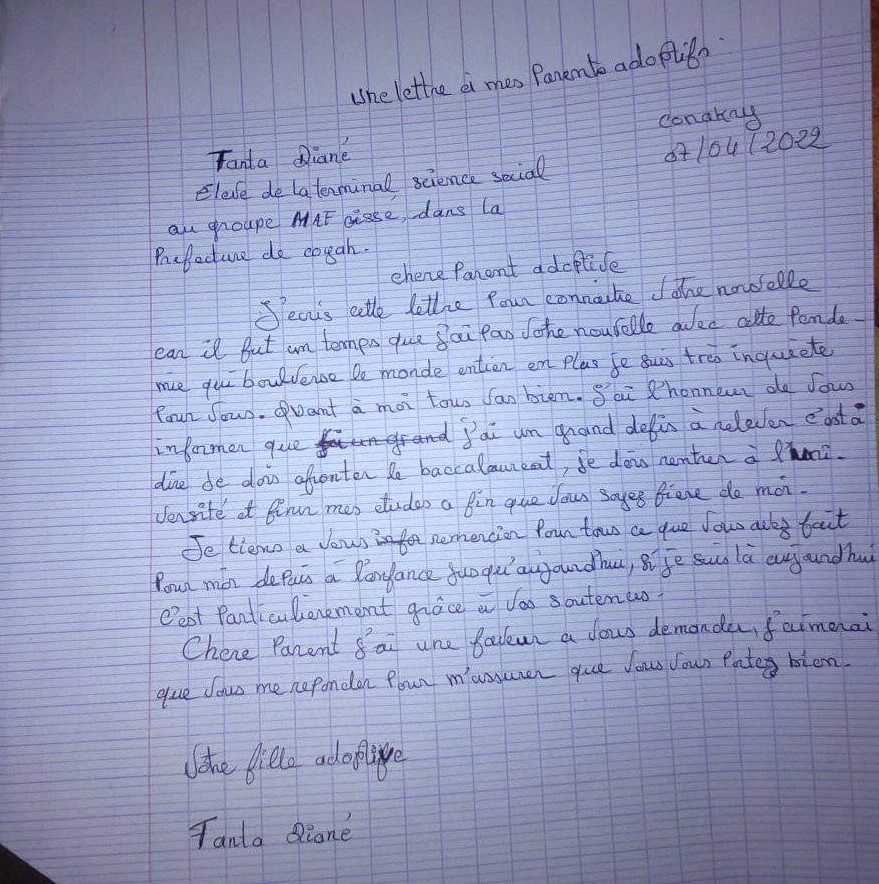 Une lettre à mes Parents adoptifs
Conakry
07/04/2022
Tanta Diané
Elève de la terminal science social
au groupe MAF cissé, dans la
Prefecture de coyah.
chere Parent adoptive
J'ecris cette lettre Pour connaitre Votre nouvelle
car il fut un temps que j'ai Pas Votre nouvelle avec cette Pende-
mie qui boulverse le monde entier en Plus je suis très inquiete
Pour Vous. Quant à moi tous Vas bien. J'ai l'honneur de Vous
informer que j'ai un grand defis à relever c'est à
dire je dois afronter le baccalaureat, je dois rentrer à l'uni-
versité et finir mes etudes a fin que Vous soyez fière de moi.
Je tiens a Vous remercier Pour tous ce que Vous avez fait
Pour moi depuis a l'enfance jusqu'aujourdhui, si je suis là aujourdhui
c'est Particulierement grâce à Vos soutenus.
Chere Parent j'ai une faveur a Vous demander, j'aimerai
que Vous me reponder Pour m'assurer que Vous Vous Portez bien.
Votre fille adoptive
Tanta Diané